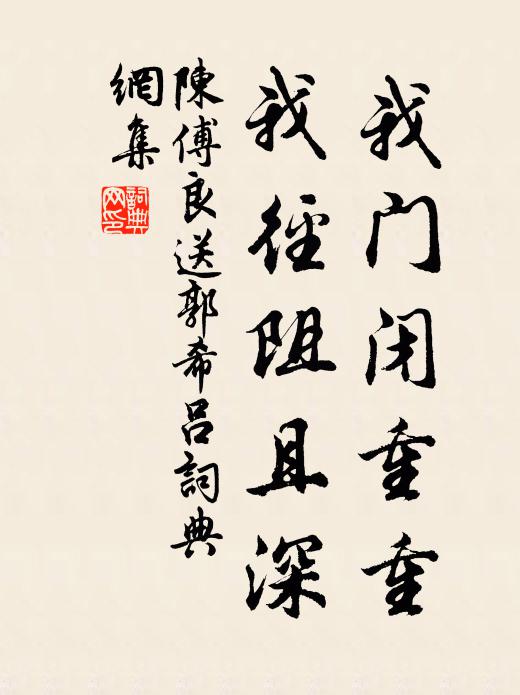 我门闭重重
我径阻且深
陳傅良送郭希吕詞典
網集
詞典網印